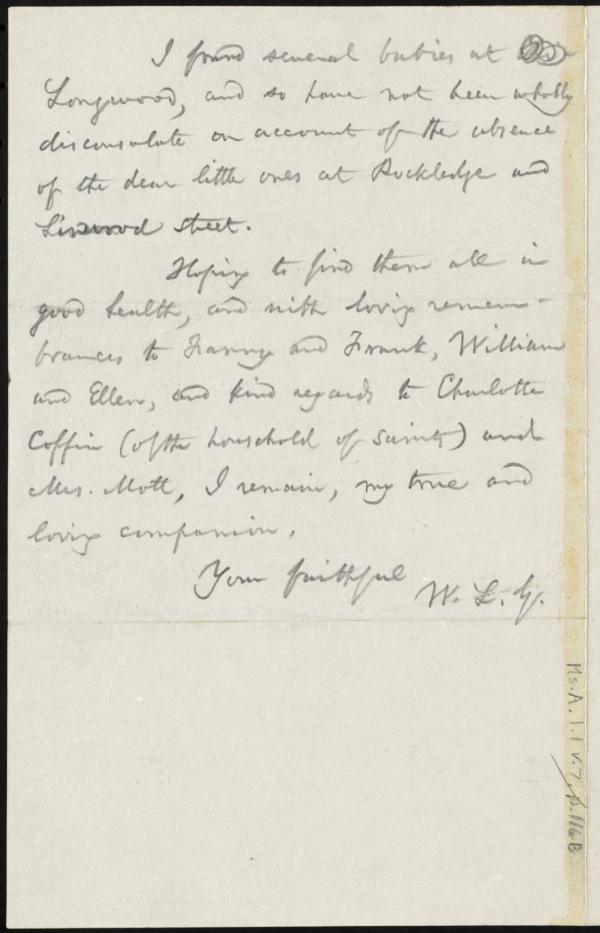 I found several babies at
Longwood, and so have not been wholly
disconsolate on account of the absence
of the dear little ones at Rockledge and
Linwood street.
Hoping to find them all in
good health, and with loving remem-
brances to Fanny and Frank, William
and Ellen, and kind regards to Charlotte
Coffin (of the household of Saints) and
Mrs. Mott, I remain, my true and
loving companion,
Your faithful
W. L. G.
Ms. A. 1. 1 v. 7, p. 116B